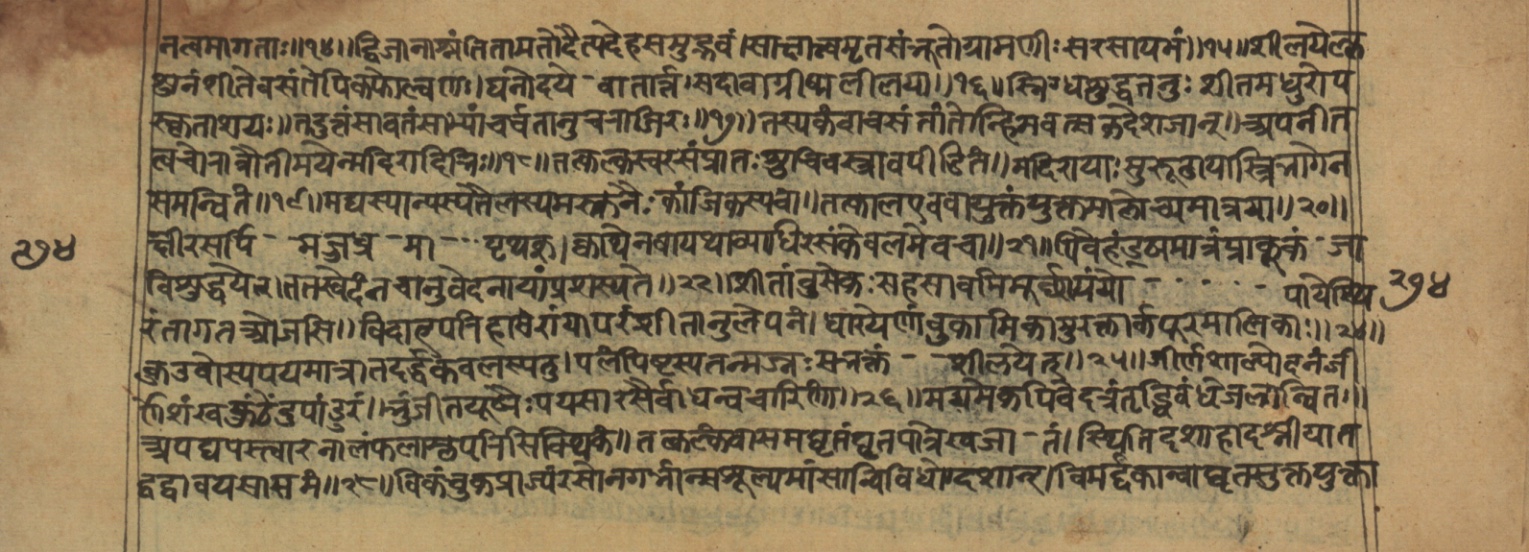 नत्वमागताः॥१४॥द्विजानाश्नंतितामतोदैत्यदेहसमुद्भवं।साक्षात्वमृतसंभूतोग्रामणीःसरसायमं॥१५॥शीलयेल्ल
शुनंशीतेवसंतेपिकफोल्वणः।घनोदये - वातार्त्तःसदावाग्रीष्मलीलया॥१६॥स्निग्धशुद्धतनुःशीतमधुरोप
स्कृताशयः॥तदुत्तंसावतंसाभ्यांचर्चितानुचराजिरः॥१७॥तस्यकंदान्वसंतांतेन्हिमवत्सकदेशजान्॥अपनीत
त्वचोरात्रौतीमयेन्मदिरादिभिः॥१८॥तत्कल्कस्वरसंप्रातःशुचिवस्त्रावपीडितं॥मदिरायाःसुरूढायास्त्रिभागेन
समन्वितं॥१९॥मद्यस्यान्यस्यतैलस्यमस्तुनैःकांजिकस्यवा॥तत्कालएववायुक्तंयुक्तमालोच्यमात्रया॥२०॥
क्षीरसर्पि - मज्जत्र - मा - - - पृथक्।क्वाथेनवायथाव्याधिरसंकेवलमेवचा॥२१॥पिबेद्गंडूषमात्रंप्राक्कंठ - जा
विशुद्धये२।ततस्वेदंनचानुवेदनायांप्रशस्यते॥२२॥शीतांबुसेकःसहसावमिमूर्च्छाययंयो - - - - - - पायेस्थिय
रंतागतओजसि॥विदाहपरिहाषेरांयापरंशीतानुलेपनं।धारयेर्णांबुकामिकामुक्ताकर्पूरमालिका॥२४॥
कुडवोस्यपयमात्रातदर्द्धकेवलस्यतु।पलंपिष्टस्यतन्मज्ज्ञःसभक्तं - - शीलयेत्॥२५॥जीर्णशाल्योदनंजी
र्णेशंखकुंदेंदुपांडुरं॥भुंजीतयूषैःपयसारसैर्वाधन्वचारिणां॥२६॥मद्यमेकंपिबेदन्नंतृड्विबंधेजलान्वितं॥
अपद्यपस्त्वारनालंफलाम्लपरिसिक्थिकं॥तत्कल्कंवासमघृतंघृतपात्रेखजा - तं।स्थितंदशाहादश्नीयात
द्वद्वावयसासमं॥२८॥विकंचुकप्राज्यंरसोनगर्भान्सशूल्यमांसान्विविधोपदंशान्।विमर्द्दकान्वाघृतसुक्तयुक्ता
२७४
२७४